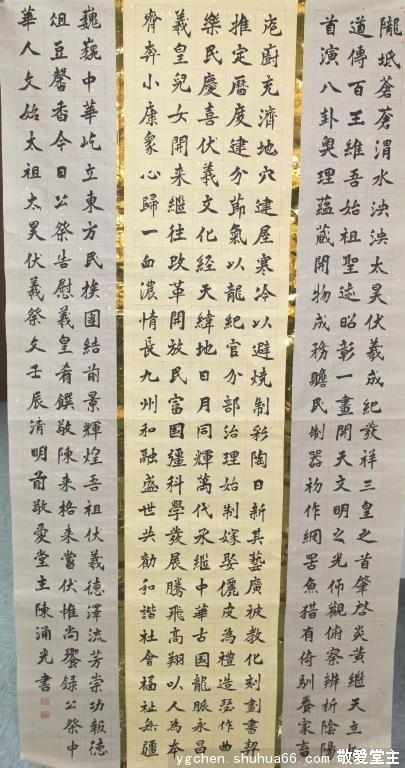 隴坻蒼蒼渭水泱泱太昊伏羲成紀發祥三皇之首肇啓炎黃繼天立
道傳百王維吾始祖聖迹昭彰一畫開天文明之光仰觀俯察辨析陰陽
首演八卦奧理蘊藏開物成務贍民制器初作網罟魚猎有倚馴養家畜
庖廚充濟地穴建屋寒冷以避燒制彩陶日新其藝廣被教化刻劃書契
推定曆度建分節氣以龍紀官分部治理始制嫁娶儷皮為禮造瑟作曲
樂民慶喜伏羲文化經天緯地日月同輝萬代承繼中華古國龍脈永昌
羲皇兒女開来繼往改革開放民富国疆科學發展騰飛高翔以人為本
齊奔小康衆心歸一血濃情長九州和融盛世共勸和諧社會福祉無疆
巍巍中華屹立東方民族團結前景輝煌吾祖伏羲德澤流芳崇功報德
俎豆馨香今日公祭告慰羲皇肴饌敬陳来格来嘗伏惟尚饗録公祭中
華人文始太祖太昊伏羲祭文壬辰清明前敬愛堂主陳涌光書
ygchen.shuhua66.com 敬爱堂主